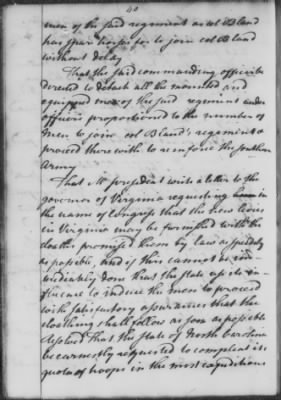 40
men of the said regiment as col Bland
has spare horses for to join col Bland
without delay
That the said commanding officer be
directed to detach all the mounted and
equipped men of the said regiment under
officers proportioned to the number of
men to join col Bland's regiment &
proceed therewith to reinforce the southern
Army
That Mr president write a letter to the
governor of Virginia requesting him in
the name of Congress that the new levies
in Virginia may be furnished with the
cloathes promised them by law as speedily
as possible, and if this cannot be im-
mediately done that the state use its in-
fluence to induce the men to proceed
with satisfactory assurances that the
cloathing shall follow as soon as possible
Resolved That the state of North Carolina
be earnestly requested to compleat its
quota of troops in the most expeditious